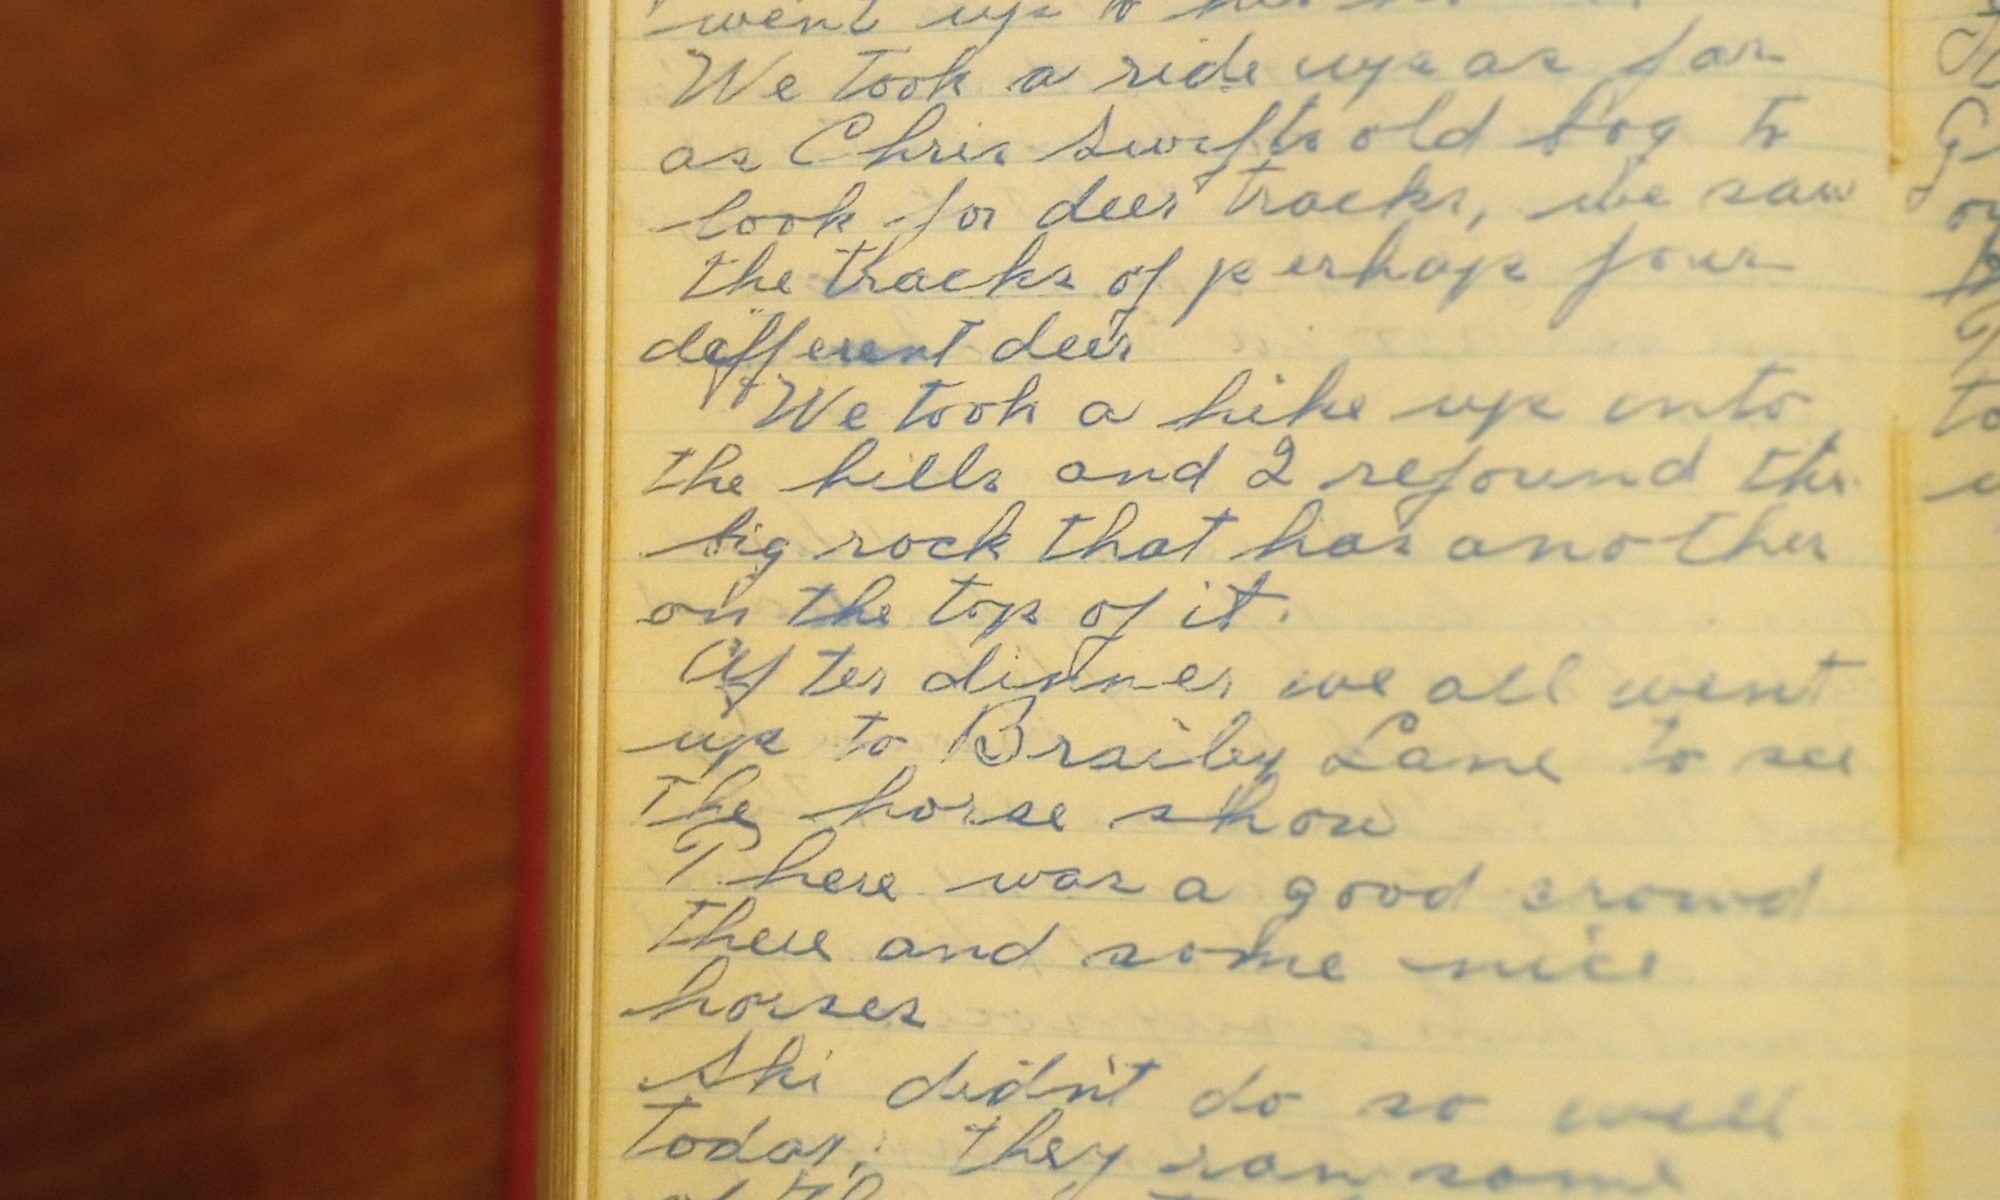 went up to
We took a ride up as far
as Chris Swifts old bog to
look for deer tracks, we saw
the tracks of perhap four
different deer
We took a hike up into
the hills and I refound the
big rock that has another
on the top of it.
After dinner we all went
up to Brailey Lane to see
the horse show
There was a good crowd
there and some nice
horses
Ski didn't do so well
today; they ran some